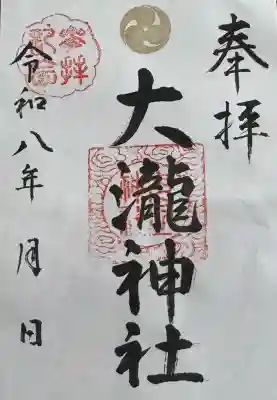 奉拝
大瀧神社
令和八年 月 日